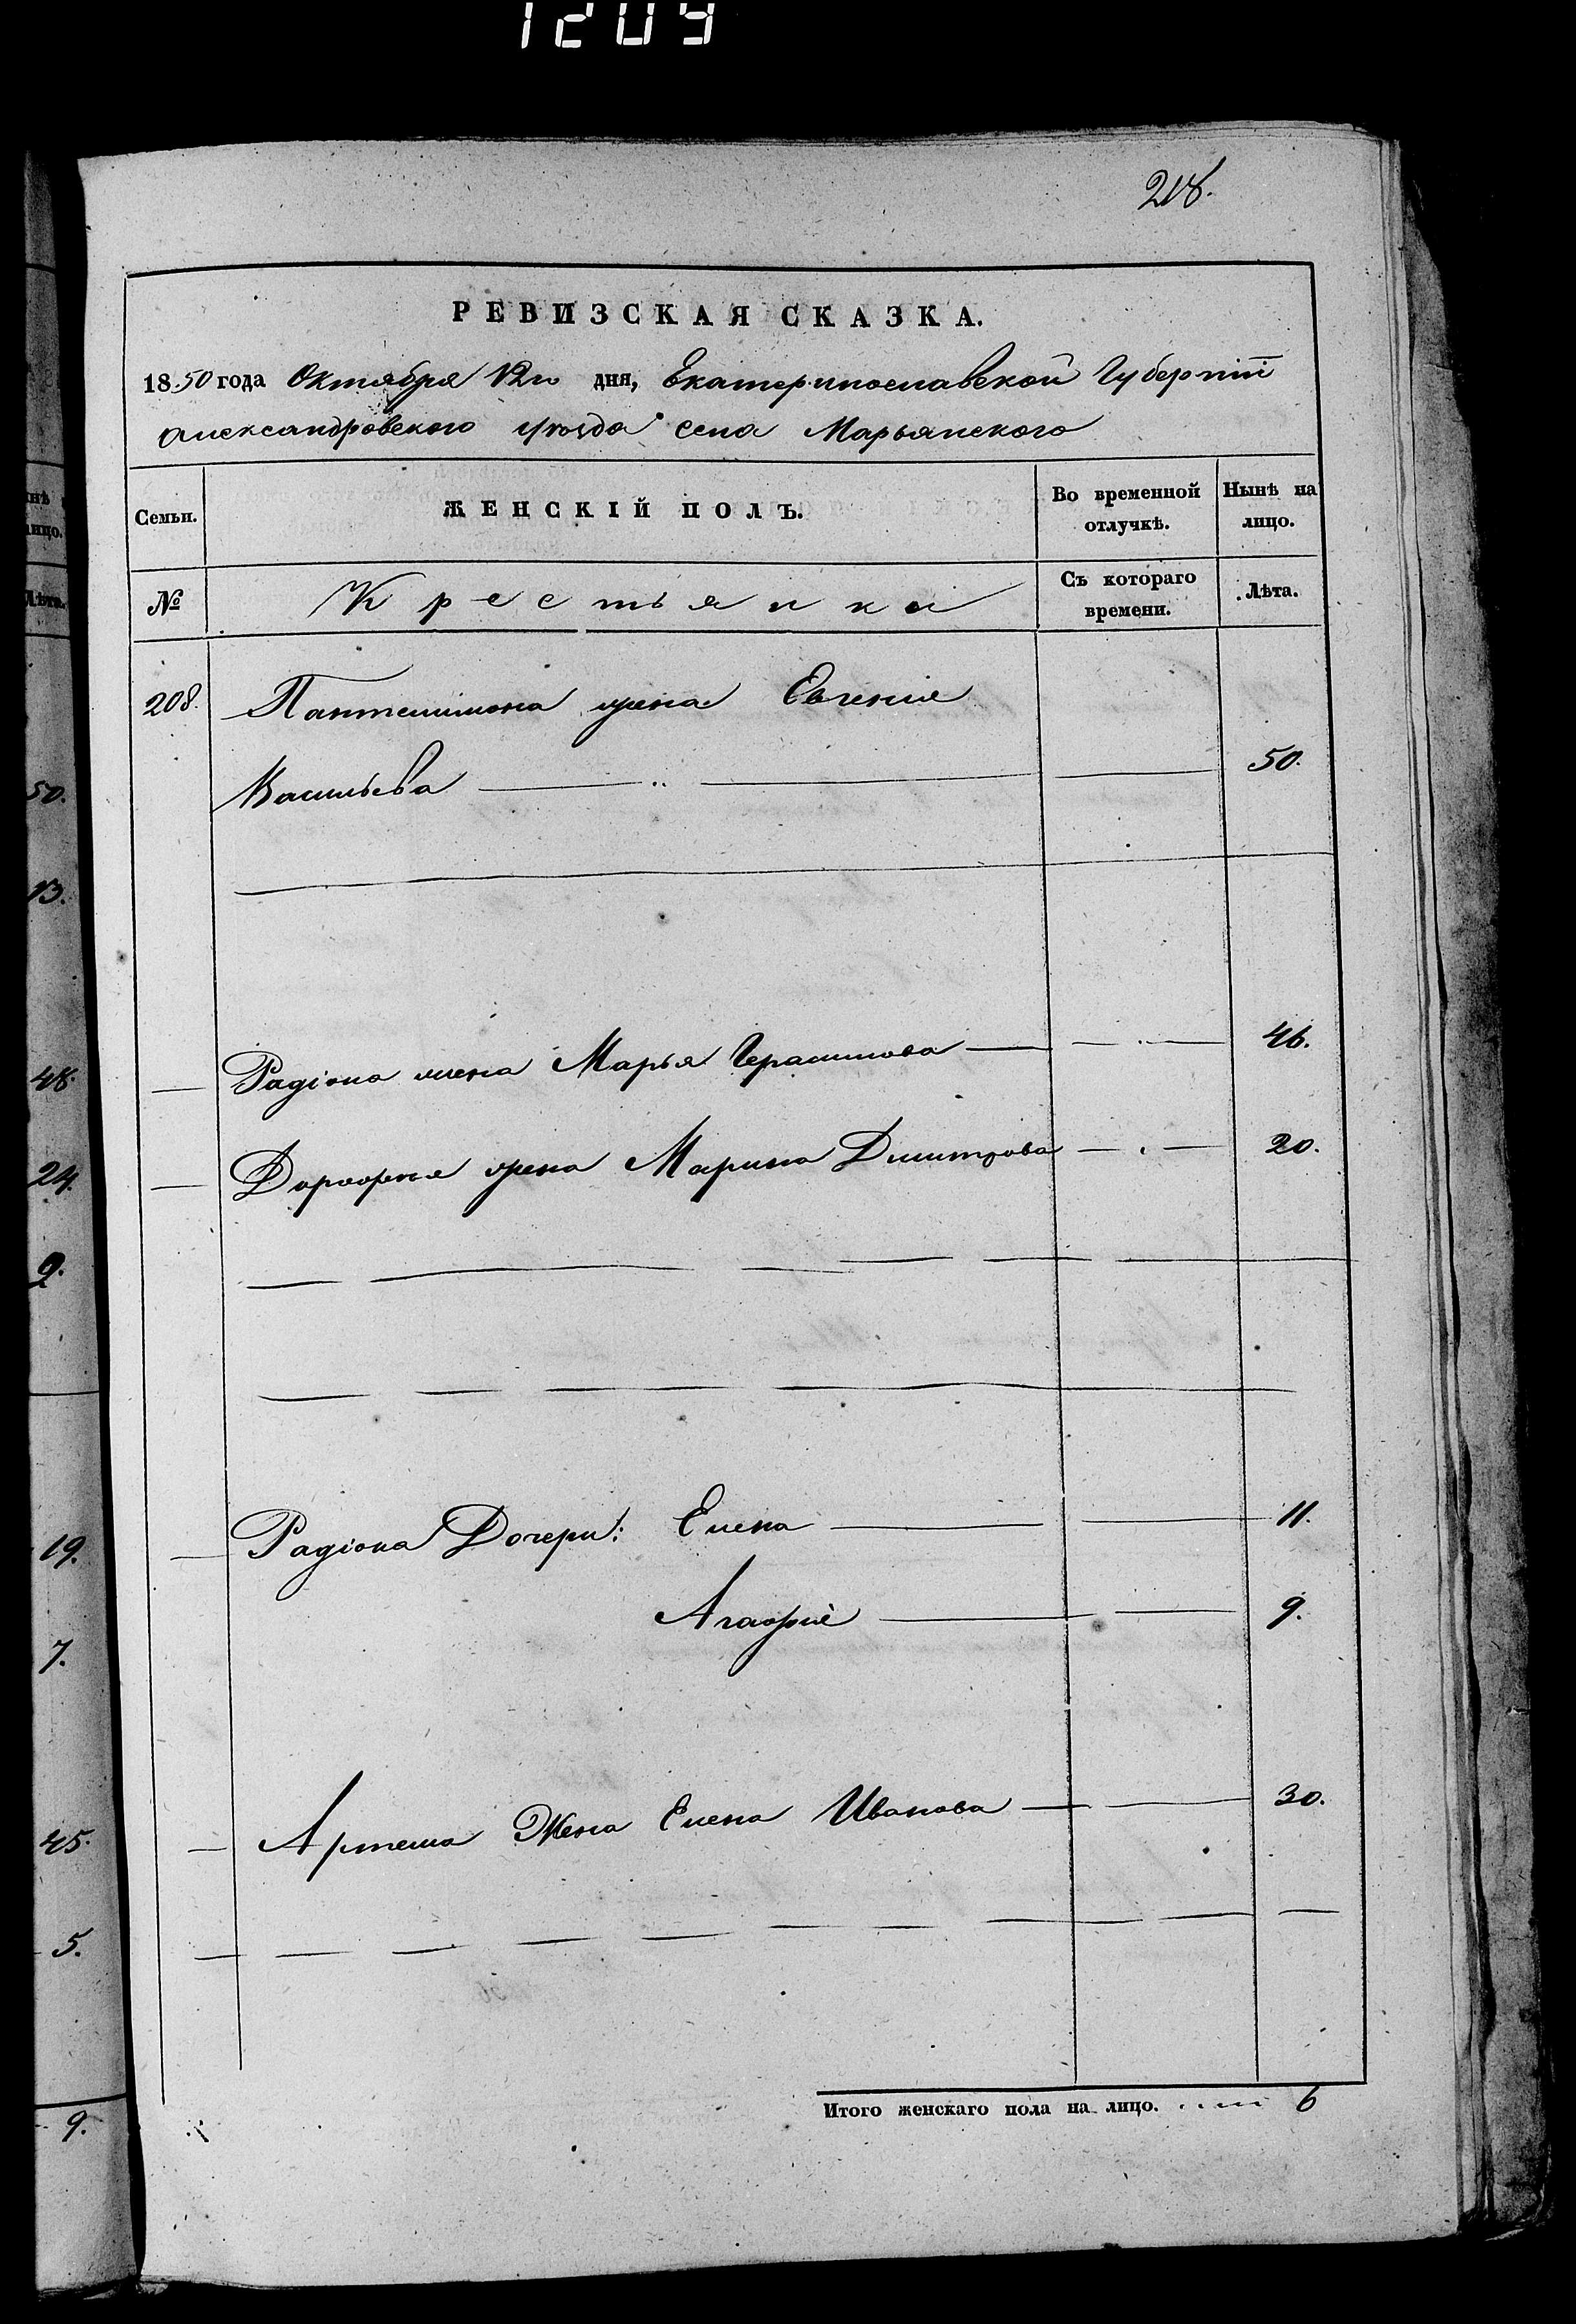 1209
218.
РЕВИЗСКАЯ СКАЗКА.
1850 года Октября 12го дня, Екатеринославской Губернiи
Александровского уѣзда села Марьянского
Семьи. ЖЕНСКІЙ ПОЛЪ. Во временной отлучкѣ. Нынѣ на лицо.
№ Крестьянки Съ котораго времени. Лѣта.
208. Пантелимона жена Евгенiя
Васильева 50.
Радiона жена Марья Герасимова 46.
Дорофея жена Марина Дмитрова 20.
Радiона Дочери: Елена 11.
Агафiя 9.
Артема Жена Елена Иванова 30.
Итого женскаго пола на лицо. 6
нѣ
лицо.
Лѣта.
50.
13.
48.
24.
2.
19.
7.
45.
5.
9.